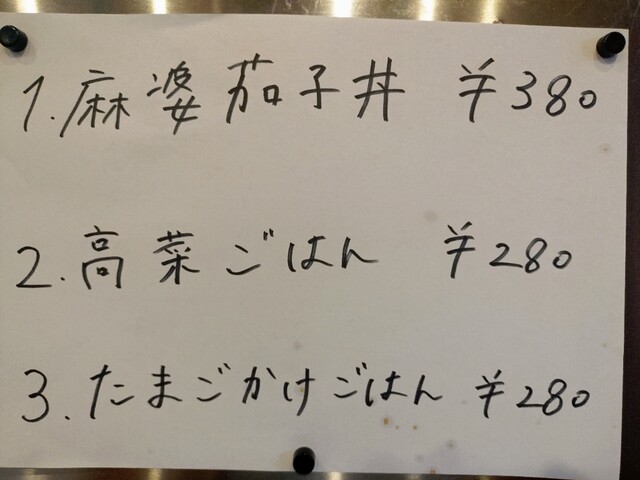 1. 麻婆茄子丼 ¥380
2. 高菜ごはん ¥280
3. たまごかけごはん ¥280